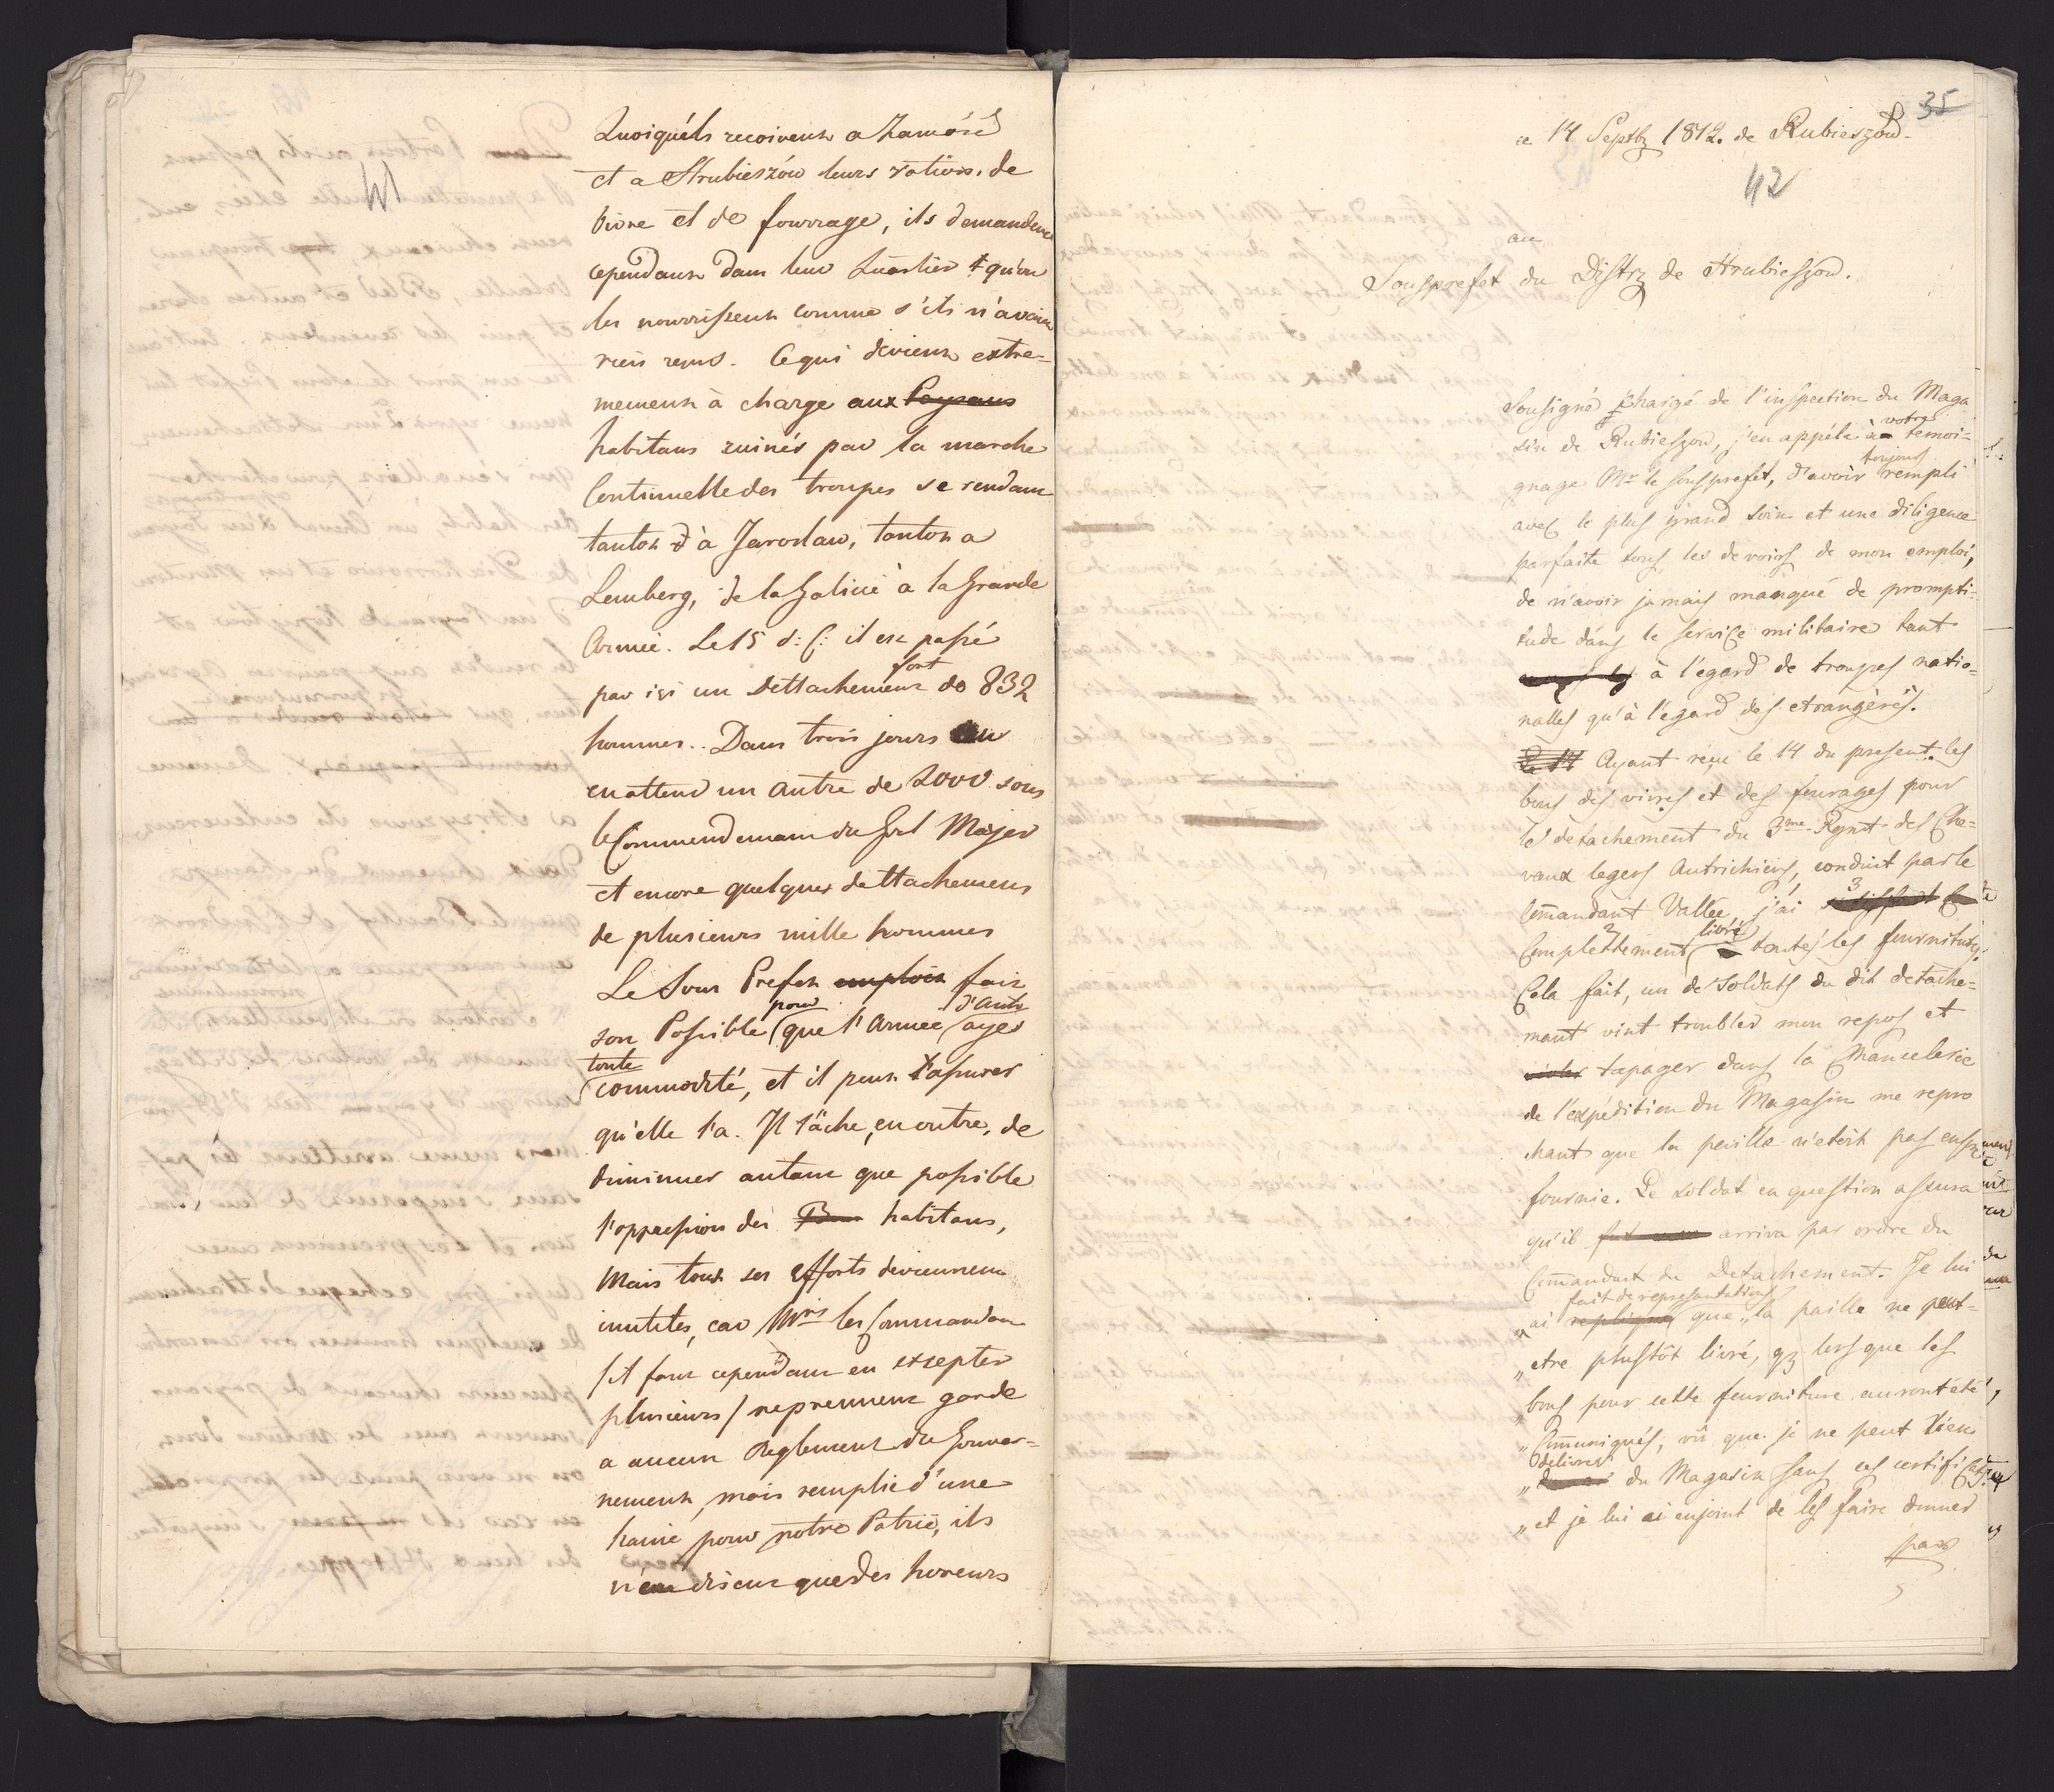 41
Quoiqu'éls recoivent a Zamość
et a Hrubieszów leurs rations de
vivre et de fourrage, ils demandent
cependant dans leur Quartier qu'on
les nourrissent comme s'ils n'avaient
rien reçus. Ce qui devient extre=
mement à charge aux Paysans
habitans ruinés par la marche
Continuelle des troupes se rendant
tantot à Jaroslaw, tantot a
Lemberg, de la Galicie à la Grande
Armée. Le 15 d: C: il est passé
par ici un Dettachement fort de 832
hommes.. Dans trois jours on
en attend un autre de 2000 sous
le Commendement du Gral Major
et encore quelques dettachemens
de plusieurs mille hommes
Le Sous Prefet emploit fait
son Possible pour que l'Armée ayes
toute commodité, et il peut s'assurer
qu'elle l'a. Il tâche, en outre, de
diminuer autant que possible
l'oppression des habitans,
Mais tous ses efforts deviennent
inutiles, car Mrs les Commandans
/il faut cependant en excepter
plusieurs/ ne prennent garde
a aucun Reglement du Gouver=
nement, mais remplie d'une
haine pour notre Patrie, ils
n'en disent que des horreurs
35
ce 14 Septbr 1812. de Rubieszow.
42
au
Sousprefet du Distr de Hrubieszow.
Sousigné Chargé de l'inspection du Maga
sin de Rubieszow, j'en appéle à votre temoi=
gnage Mr le sousprefet, d'avoir toujours rempli
avec le plus grand soin et une diligence
parfaite tous les devoirs de mon emploi,
de n'avoir jamais manqué de prompti=
tude dans le service militaire tant
à l'égard de troupes natio=
nalles qu'à l'égard des etrangères.
Le 14 Ayant réçu le 14 du present les
bons des vivres et des fourages pour
le detachement du 3me Rgmt des Che=
vaux legers Autrichiens, conduit par le
Comandant Vallée, j'ai 3
Complettement 2 livré toutes les fournitures.
Cela fait, un de soldats du dit detache=
mant vint troubler mon repos et
tapager dans la Chancelerie
de l'expédition du Magasin me repro
chant que la paille n'etoit pas encore
fournie. Le soldat en question assura
qu'il arriva par ordre du
Comandant du Detachement. Je lui
"ai repliqué fait de representations que "la paille ne peut=
"etre plustôt livré, q lorsque les
"bons pour cette fourniture auront été,
"Comuniqués, vû que je ne peut rien
"delivrer du Magasin sans ces certificats
"et je lui ai enjoint de les faire donner
par